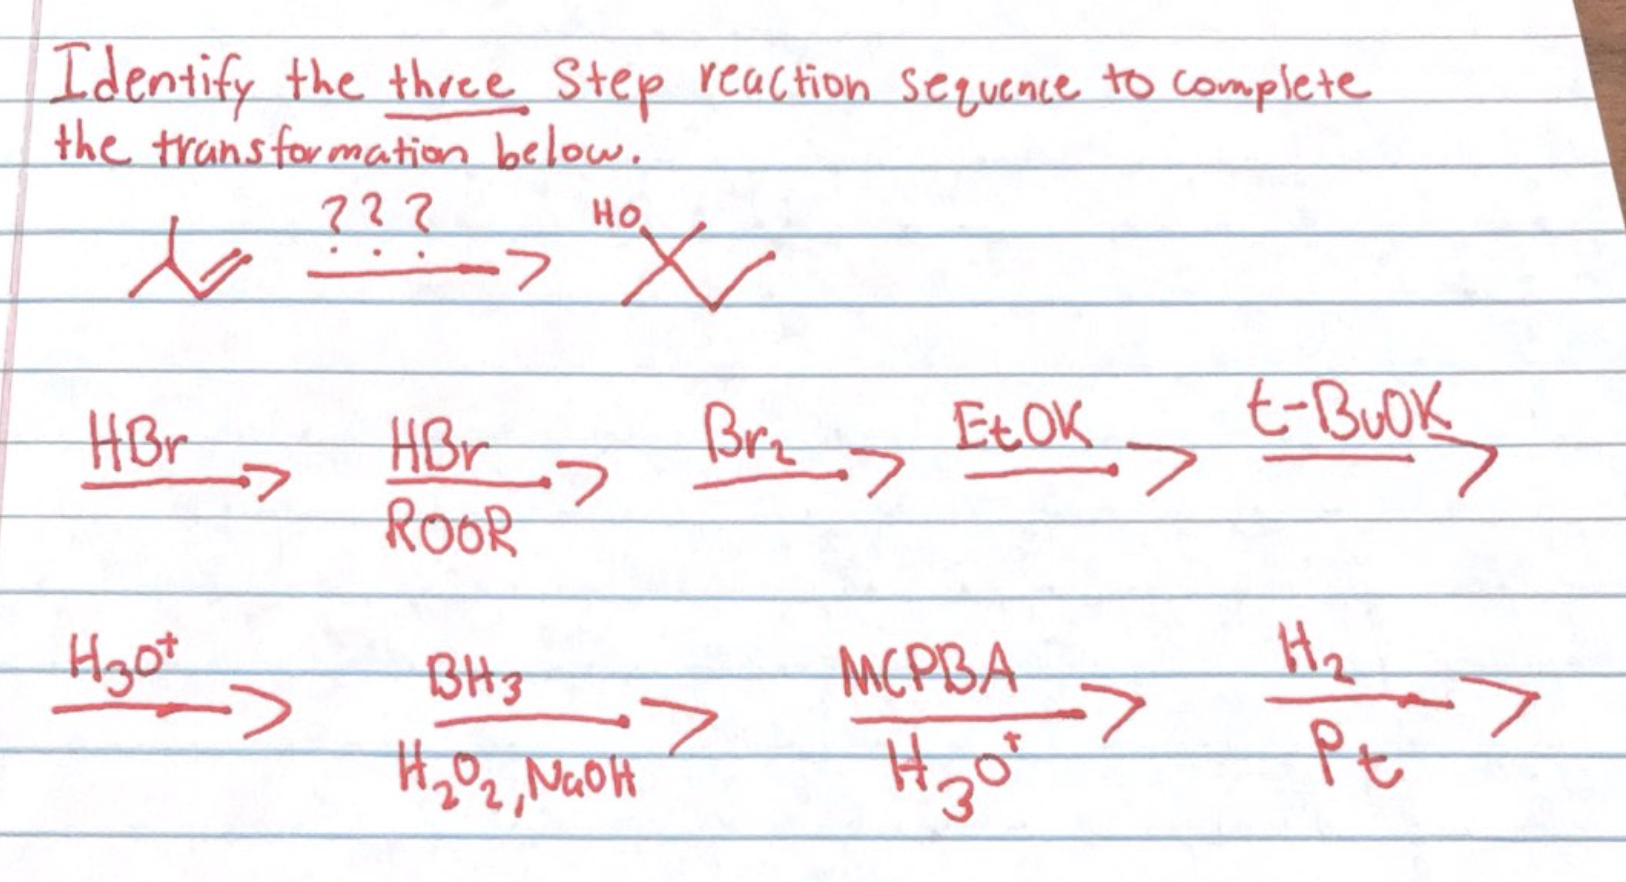 Identify the three Step reaction sequence to complete
the transformation below.
? ? ?
HO
HBr
HBr
ROOR
Br₂
EtOK
t-BuOK
H₃O⁺
BH₃
H₂O₂, NaOH
MCPBA
H₃O⁺
H₂
Pt